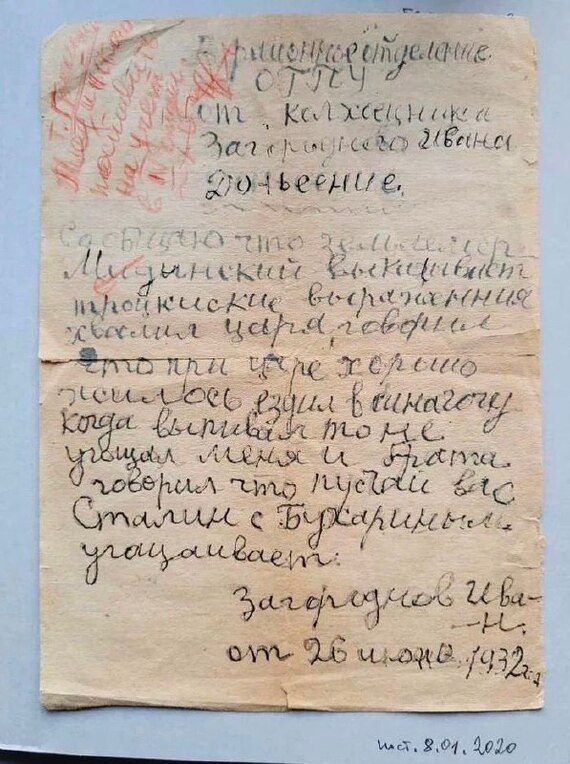 В районное отделение
ОГПУ
от колхозника
Загороднего Ивана
Доньесение.
Сообщаю что землемер
Мидынский выказывает
троцкиские выражения
хвалил царя, говорил
что при царе хорошо
жилось, ездил в синагогу
когда выпивал то не
угощал меня и брата
говорил что пускай вас
Сталин с Бухариным
угащаивает.
Загороднов Ива-
-н.
от 26 июня 1932 г.
на учет
пост. 8.01. 2020